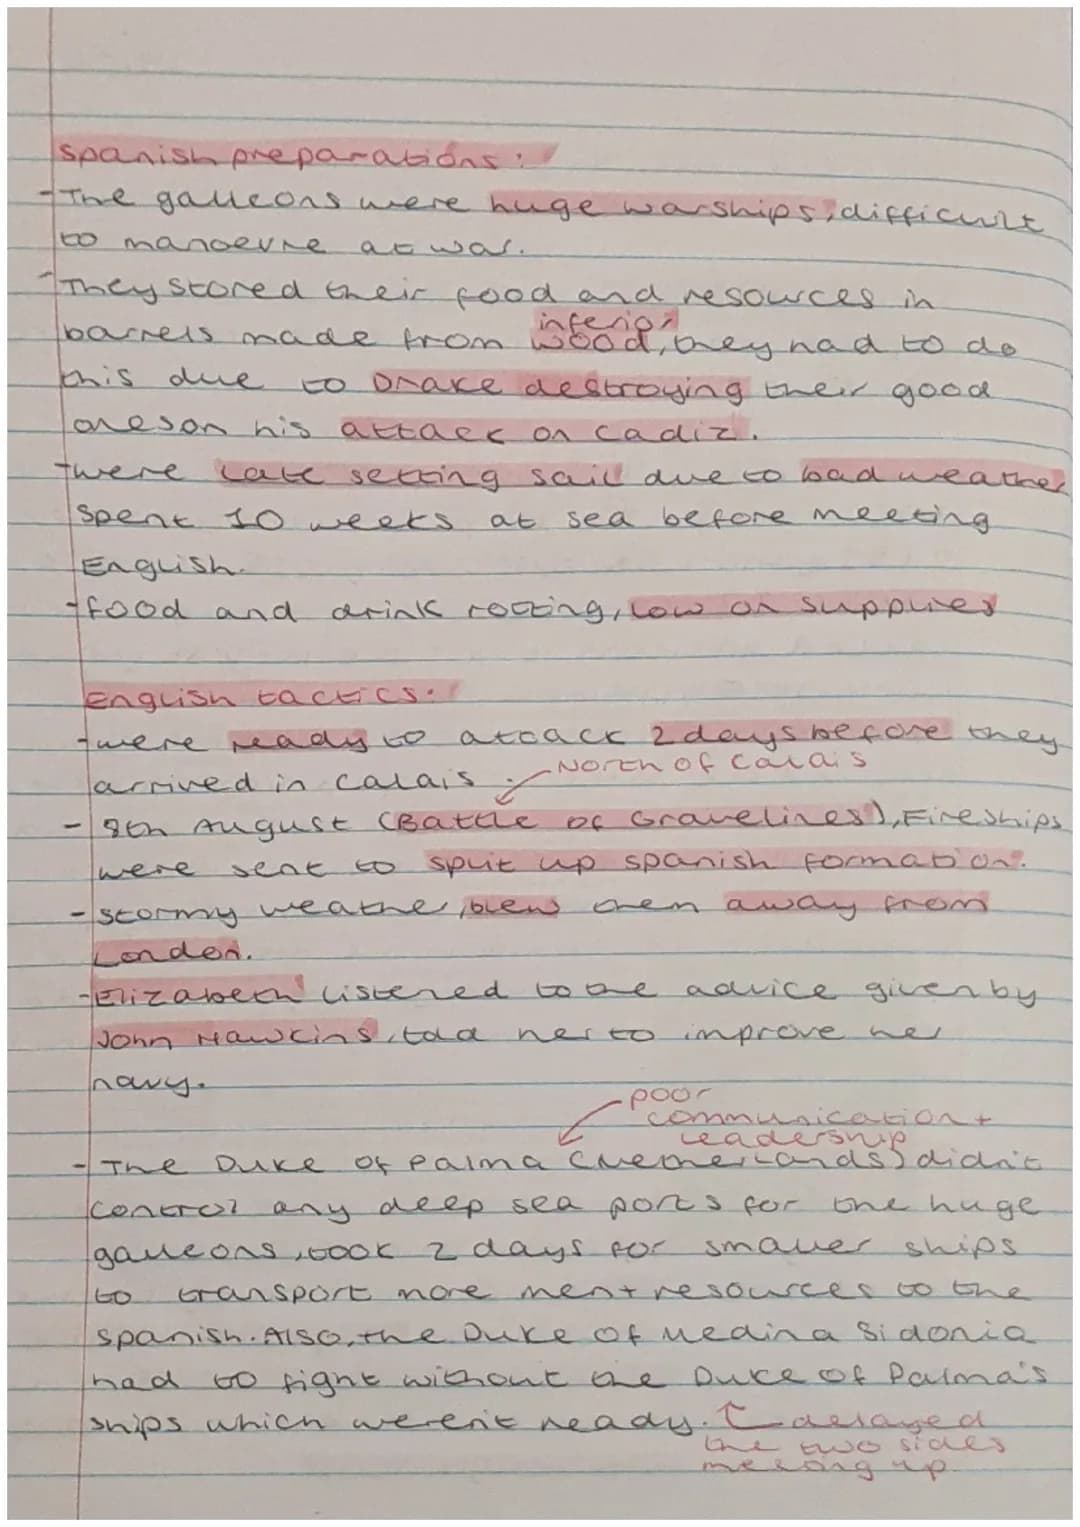 Spanish preparations:
- The galleons were huge warships, difficult
to manoevre at war.
- They stored their food and resources in
inferior
barrels made from wood, they had to do
this due to Drake destroying their good
ones on his attack on Cadiz.
- were late setting sail due to bad weather
spent 10 weeks at sea before meeting
English.
- food and drink rotting, low on supplies
English tactics:
- were ready to attack 2 days before they
North of Calais
arrived in Calais.
- 8th August (Battle of Gravelines), Fireships
were sent to split up spanish formation.
- stormy weather, blew them away from
London.
- Elizabeth listened to the advice given by
John Hawkins, told her to improve her
navy.
poor
communication +
leadership
- The Duke of Palma (Netherlands) didn't
control any deep sea ports for the huge
galleons, took 2 days for smaller ships
to transport more men + resources to the
spanish. Also, the Duke of Medina Sidonia
had to fight without the Duke of Palma's
ships which weren't ready. ↑ delayed
the two sides
meeting up.